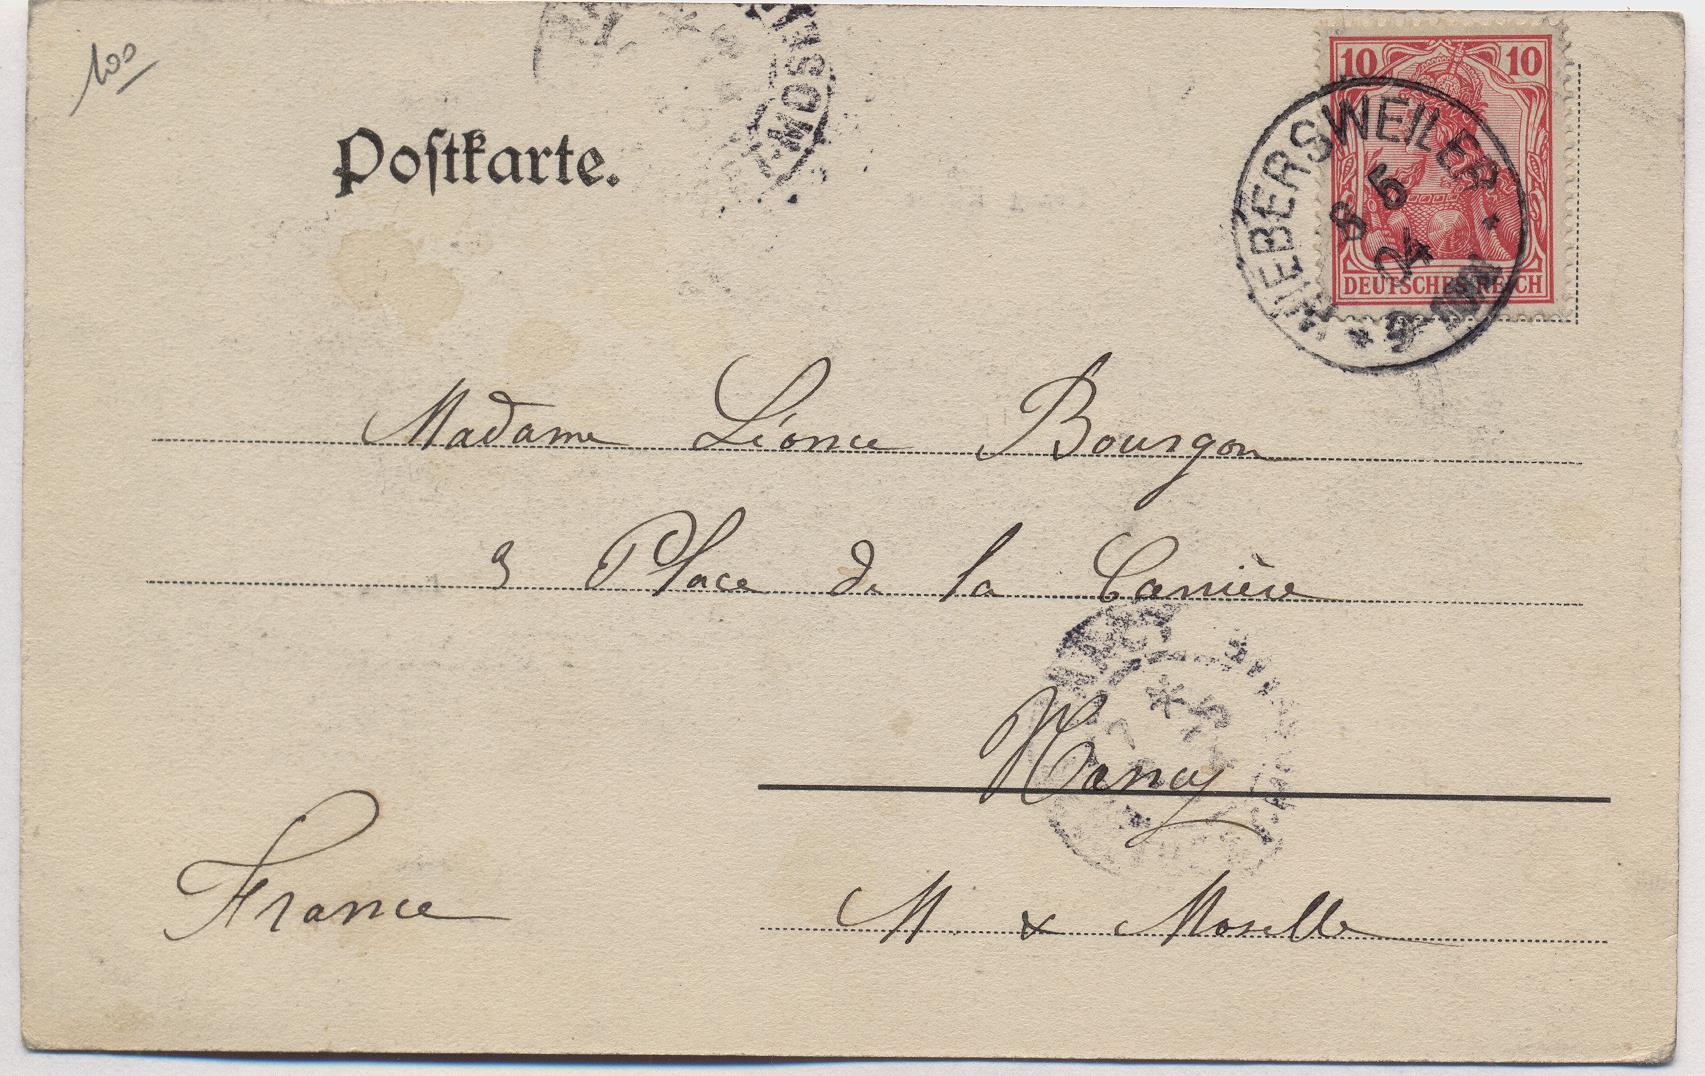 100
Postkarte.
MOS
10 10
DEUTSCHES REICH
WIEBERSWEILER
8 5
24
9-10V
Madame Léonce Bourgon
9 Place de la Carrière
NANCY
Nancy
France
M. & Moselle